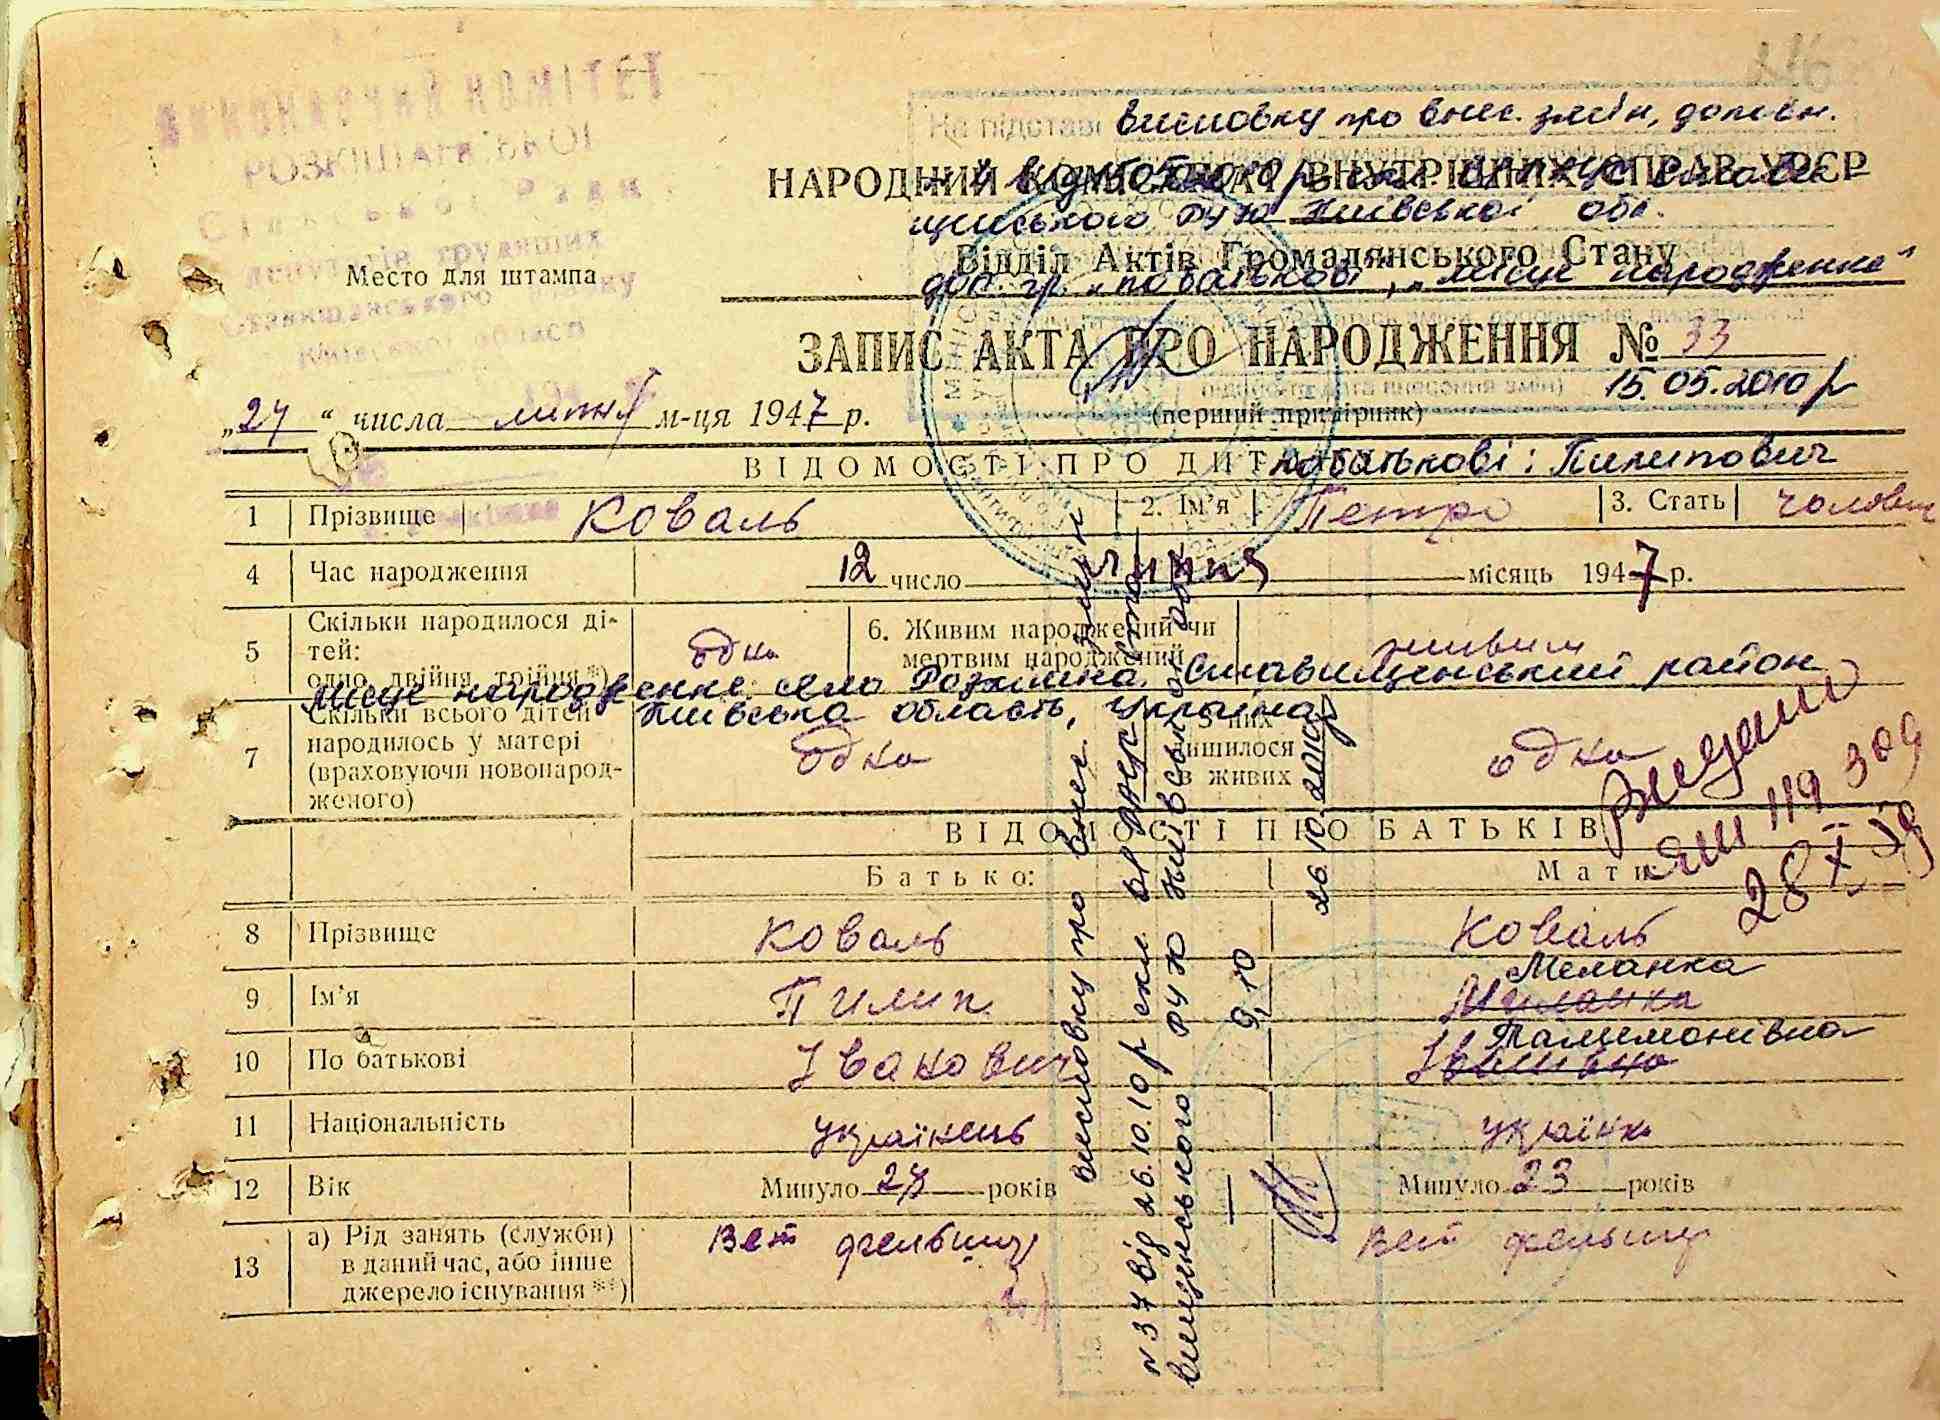 ВИКОНАВЧИЙ КОМІТЕТ
РОЗКІШНЯНСЬКОЇ
Сільської Ради
депутатів трудящих
Ставищанського району
Київської області
Место для штампа
На підставі висновку про внес. змін, доповн.
НАРОДНИЙ КОМІСАРІАТ ВНУТРІШНІХ СПРАВ УРСР
щинського РУЮ Київської обл.
Відділ Актів Громадянського Стану
доп. гр. „по батькові", „місце народження"
ЗАПИС АКТА ПРО НАРОДЖЕННЯ № 33
15.05.2010р
„24" числа липня м-ця 1947 р.
(перший примірник)
ВІДОМОСТІ ПРО ДИТИНУ
по батькові: Пилипович
1 Прізвище Коваль 2. Ім'я Петро 3. Стать чолов
4 Час народження 12 число липня місяць 1947 р.
5 Скільки народилося дітей: одно, двійня, трійня *) одна 6. Живим народжений чи мертвим народжений живим
Місце народження: село Розкішна Ставищенський район
Київська область, Україна
7 Скільки всього дітей народилось у матері (враховуючи новонародженого) одна З них лишилося в живих одна
Видано
ЯШ 119309
28 X
ВІДОМОСТІ ПРО БАТЬКІВ
Батько: Мати
8 Прізвище Коваль Коваль
Меланка
9 Ім'я Пилип Миланка
Палимонівна
10 По батькові Іванович Іванівна
11 Національність українець українка
12 Вік Минуло 27 років Минуло 23 років
13 а) Рід занять (служби) в даний час, або інше джерело існування **) Вет фельшир Вет фельшир
висновку про внес. змін
№ 37 від 26.10.10р скл. ВР ДАЦС Ста
вищенського РУЮ Київської обл.
9, 10
26.10.2010р